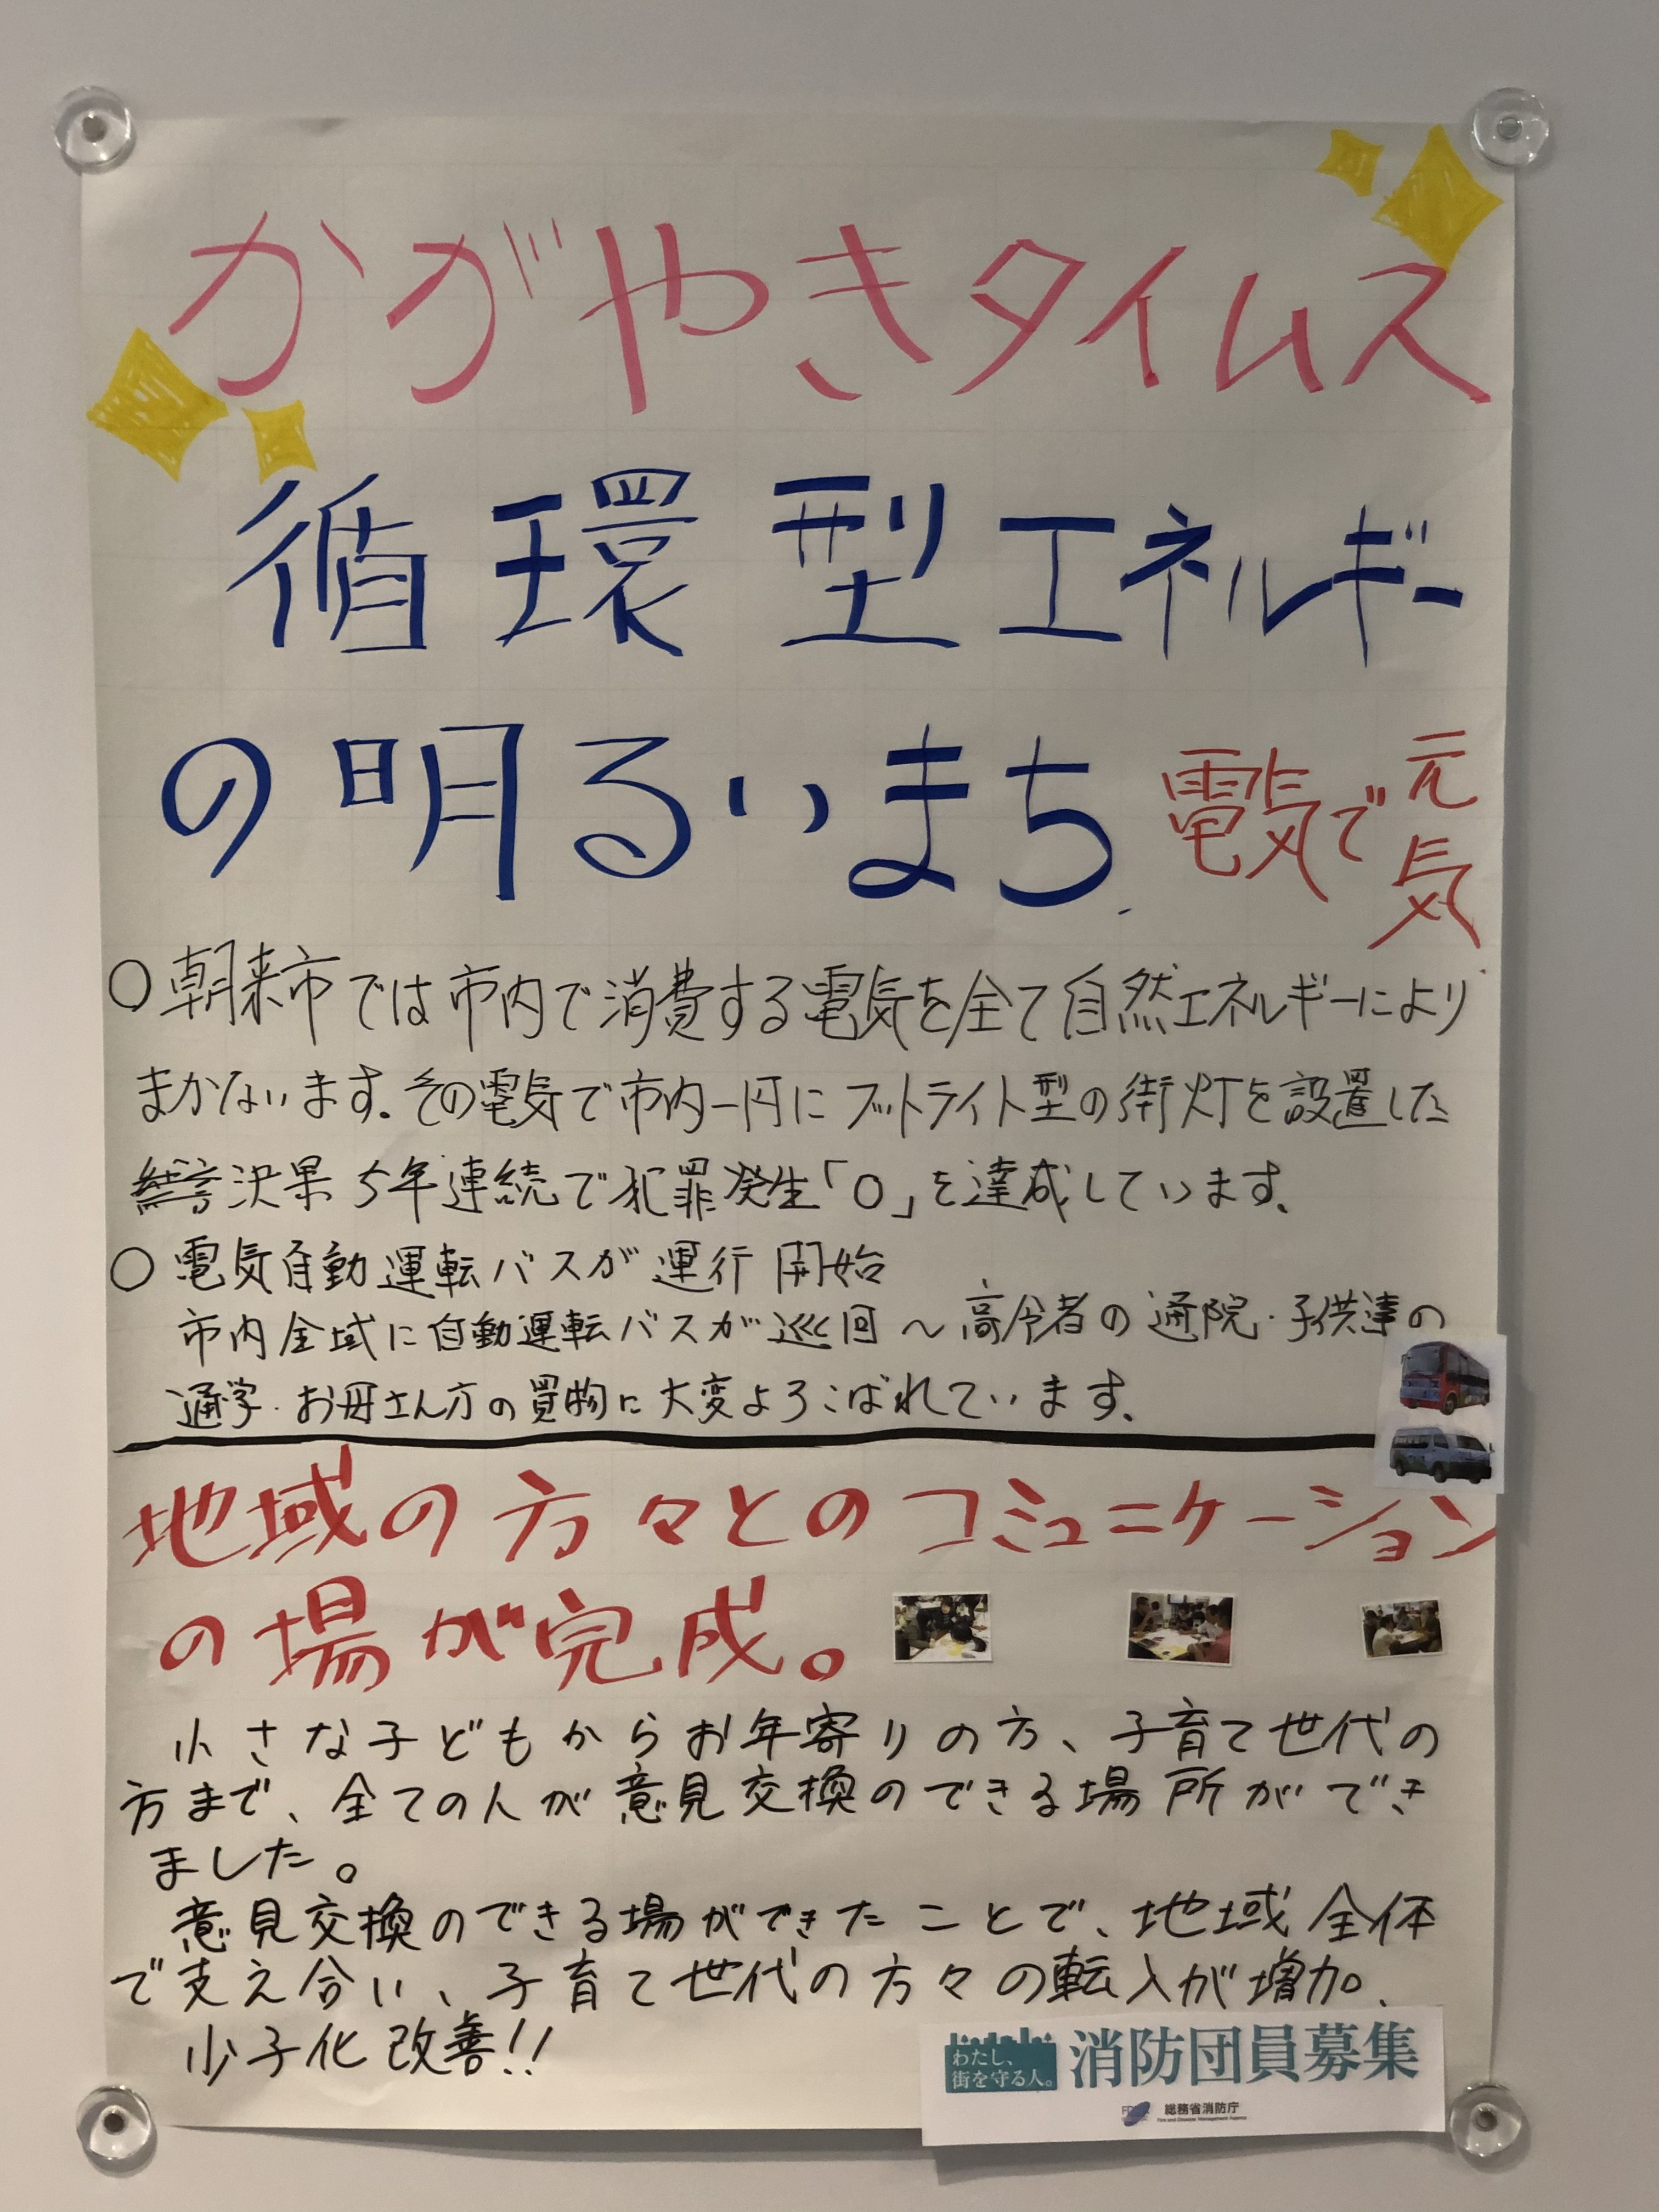 かがやきタイムス
循環型エネルギー
の明るいまち 電気で元気
○朝来市では市内で消費する電気を全て自然エネルギーにより
まかないます。その電気で市内一円にフットライト型の街灯を設置した
結果5年連続で犯罪発生「0」を達成しています。
○電気自動運転バスが運行開始
市内全域に自動運転バスが巡回〜高令者の通院・子供達の
通学・お母さん方の買物に大変よろこばれています。
地域の方々とのコミュニケーション
の場が完成。
小さな子どもからお年寄りの方、子育て世代の
方まで、全ての人が意見交換のできる場所ができ
ました。
意見交換のできる場ができたことで、地域全体
で支え合い、子育て世代の方々の転入が増加。
少子化改善!!
わたし、
街を守る人。
消防団員募集
総務省消防庁
Fire and Disaster Management Agency